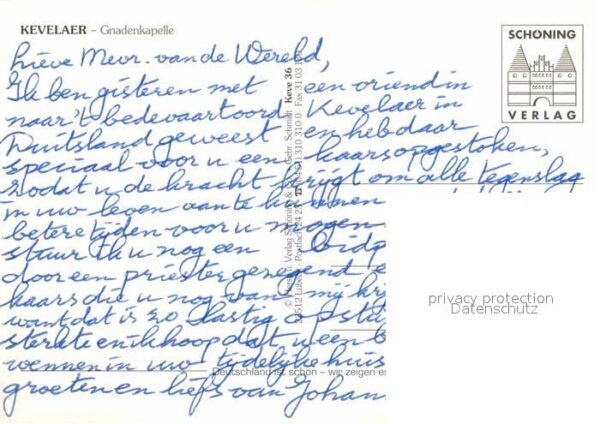 KEVELAER – Gnadenkapelle
SCHÖNING
VERLAG
Lieve Mevr. van de Wereld,
Ik ben gisteren met een vriendin
naar 't bedevaartoord Kevelaer in
Duitsland geweest en heb daar
speciaal voor u een kaars opgestoken,
zodat u de kracht krijgt om alle tegenslag
in uw leven aan te kunnen
betere tijden voor u mogen
stuur ik u nog een
door een priester gezegend e
kaars die u nog van mij kri
want dat is zo lastig opstu
sterkte en ik hoop dat u een b
wennen in uw tijdelijke huis
groeten en liefs van Johan
© Schöning & Gebr. Schmidt Keve 36
privacy protection
Datenschutz
Deutschland ist schön – wir zeigen es